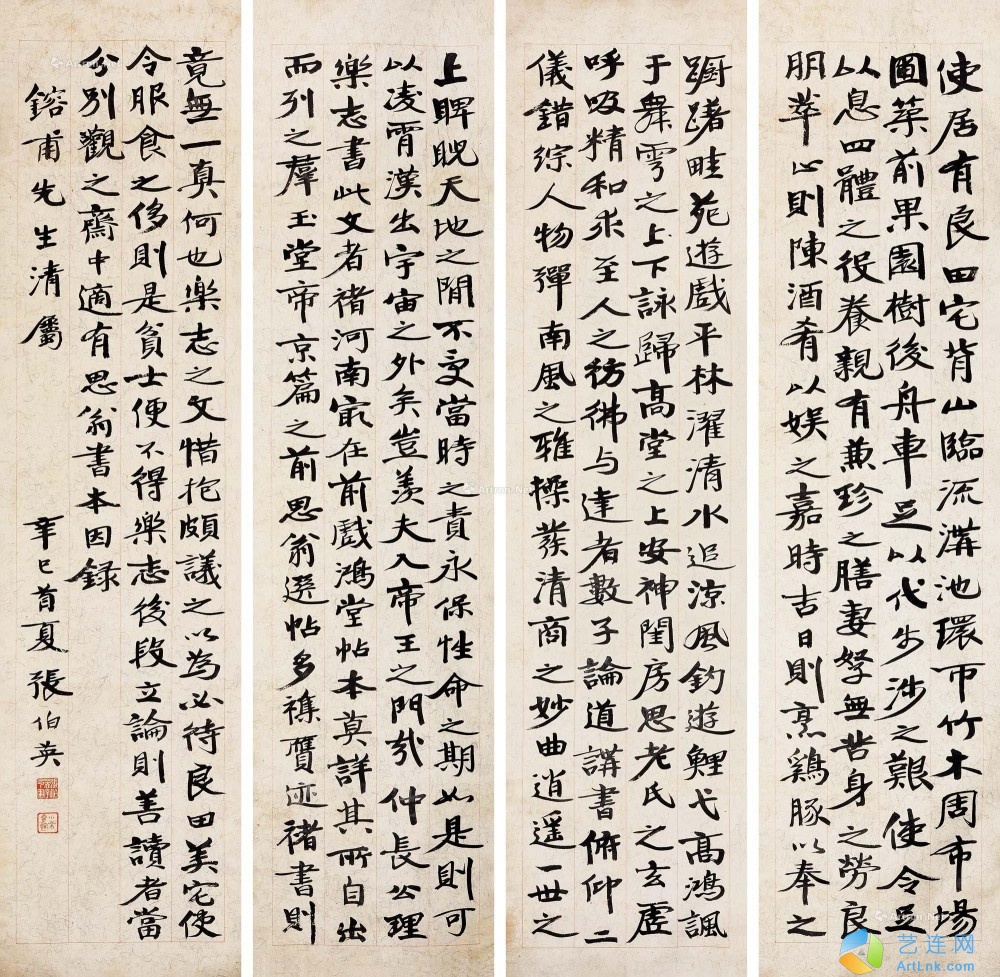 使居有良田宅背山臨流溝池環帀竹木周布場
圃築前果園樹後舟車足以代步涉之艱使令足
以息四體之役養親有兼珍之膳妻孥無苦身之勞良
朋萃止則陳酒肴以娛之嘉時吉日則烹鷄豚以奉之
躕躇畦苑遊戲平林濯清水追涼風釣遊鯉弋高鴻諷
于舞雩之上下詠歸高堂之上安神閨房思老氏之玄虛
呼吸精和求至人之彷彿与達者數子論道講書俯仰二
儀錯綜人物彈南風之雅操發清商之妙曲逍遥一世之
上睥睨天地之間不受當時之責永保性命之期如是則可
以凌霄漢出宇宙之外矣豈羨夫入帝王之門哉仲長公理
樂志書此文者褚河南宬在前戲鴻堂帖本莫詳其所自出
而列之羣玉堂帝京篇之前思翁選帖多襍贋迹褚書則
竟無一真何也樂志之文惜抱頗議之以為必待良田美宅使
令服食之侈則是貧士便不得樂志後段立論則善讀者當
分別觀之齋中適有思翁書本因録
鎔甫先生清屬
辛巳首夏 張伯英
艺连网
ArtLnk.com